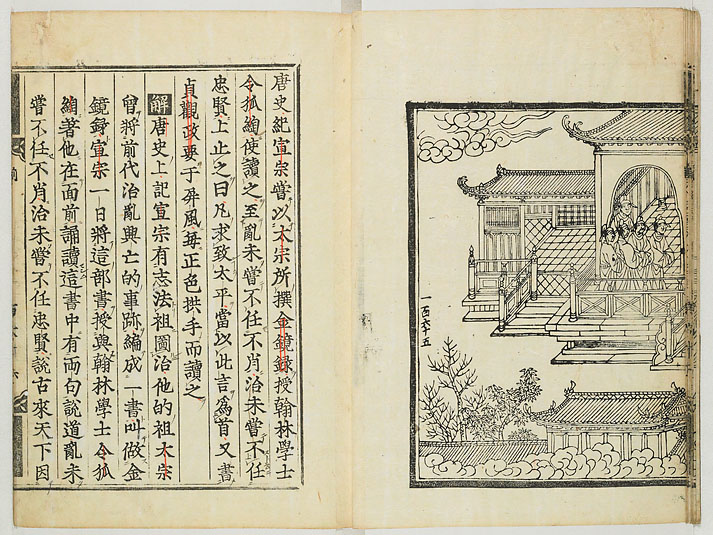 一百六十五
唐史紀宣宗嘗以太宗所撰金鏡錄授翰林學士
令狐綯使讀之至亂未嘗不任不肖治未嘗不任
忠賢上止之曰凡求致太平當以此言爲首又書
貞觀政要于屛風每正色拱手而讀之
解唐史上記宣宗有志法祖圖治他的祖太宗
曾將前代治亂興亡的事跡編成一書叫做金
鏡錄宣宗一日將這部書授與翰林學士令狐
綯著他在面前誦讀這書中有兩句說道亂未
嘗不任不肖治未嘗不任忠賢說古來天下因